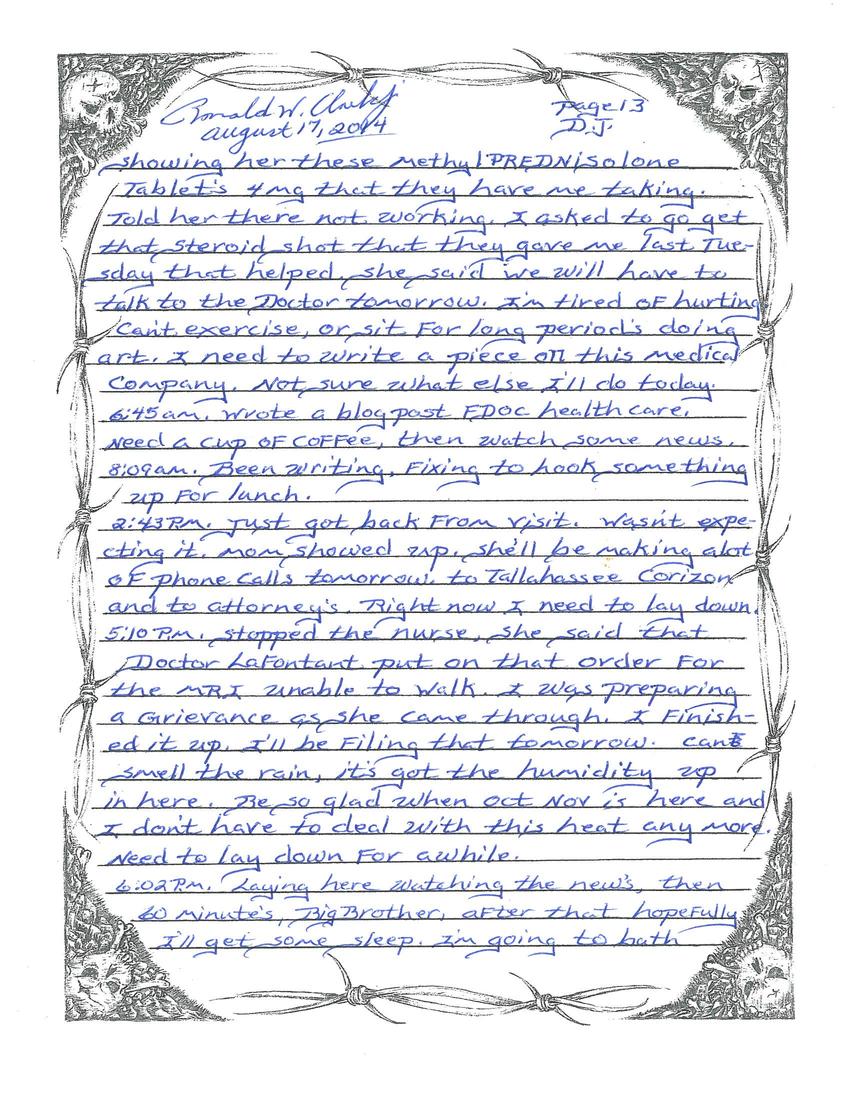 Ronald W. Clark Jr
Page 13
August 17, 2014
D.J.
showing her these MethylPREDNISolone
Tablet's 4mg that they have me taking.
Told her there not working. I asked to go get
that steroid shot that they gave me last Tue-
sday that helped, she said we will have to
talk to the Doctor tomorrow. I'm tired of hurting
Can't exercise, or sit for long period's doing
art. I need to write a piece on this medical
Company. Not sure what else I'll do today.
6:45am. Wrote a blog post FDOC health care.
Need a cup of coffee, then watch some news.
8:09am. Been writing, Fixing to hook something
up for lunch.
2:43 P.M. Just got back from visit. Wasn't expe-
cting it. Mom showed up. she'll be making alot
of phone calls tomorrow, to Tallahassee Corizon
and to attorney's. Right now I need to lay down.
5:10 P.M. stopped the nurse, she said that
Doctor LaFontant put on that order for
the MRI unable to walk. I was preparing
a Grievance as she came through. I Finish-
ed it up. I'll be Filing that tomorrow. cant
smell the rain, it's got the humidity up
in here. Be so glad when Oct Nov is here and
I don't have to deal with this heat any more.
Need to lay down for awhile.
6:02 P.M. Laying here watching the new's, then
60 minute's, Big Brother, after that hopefully
I'll get some sleep. I'm going to bath